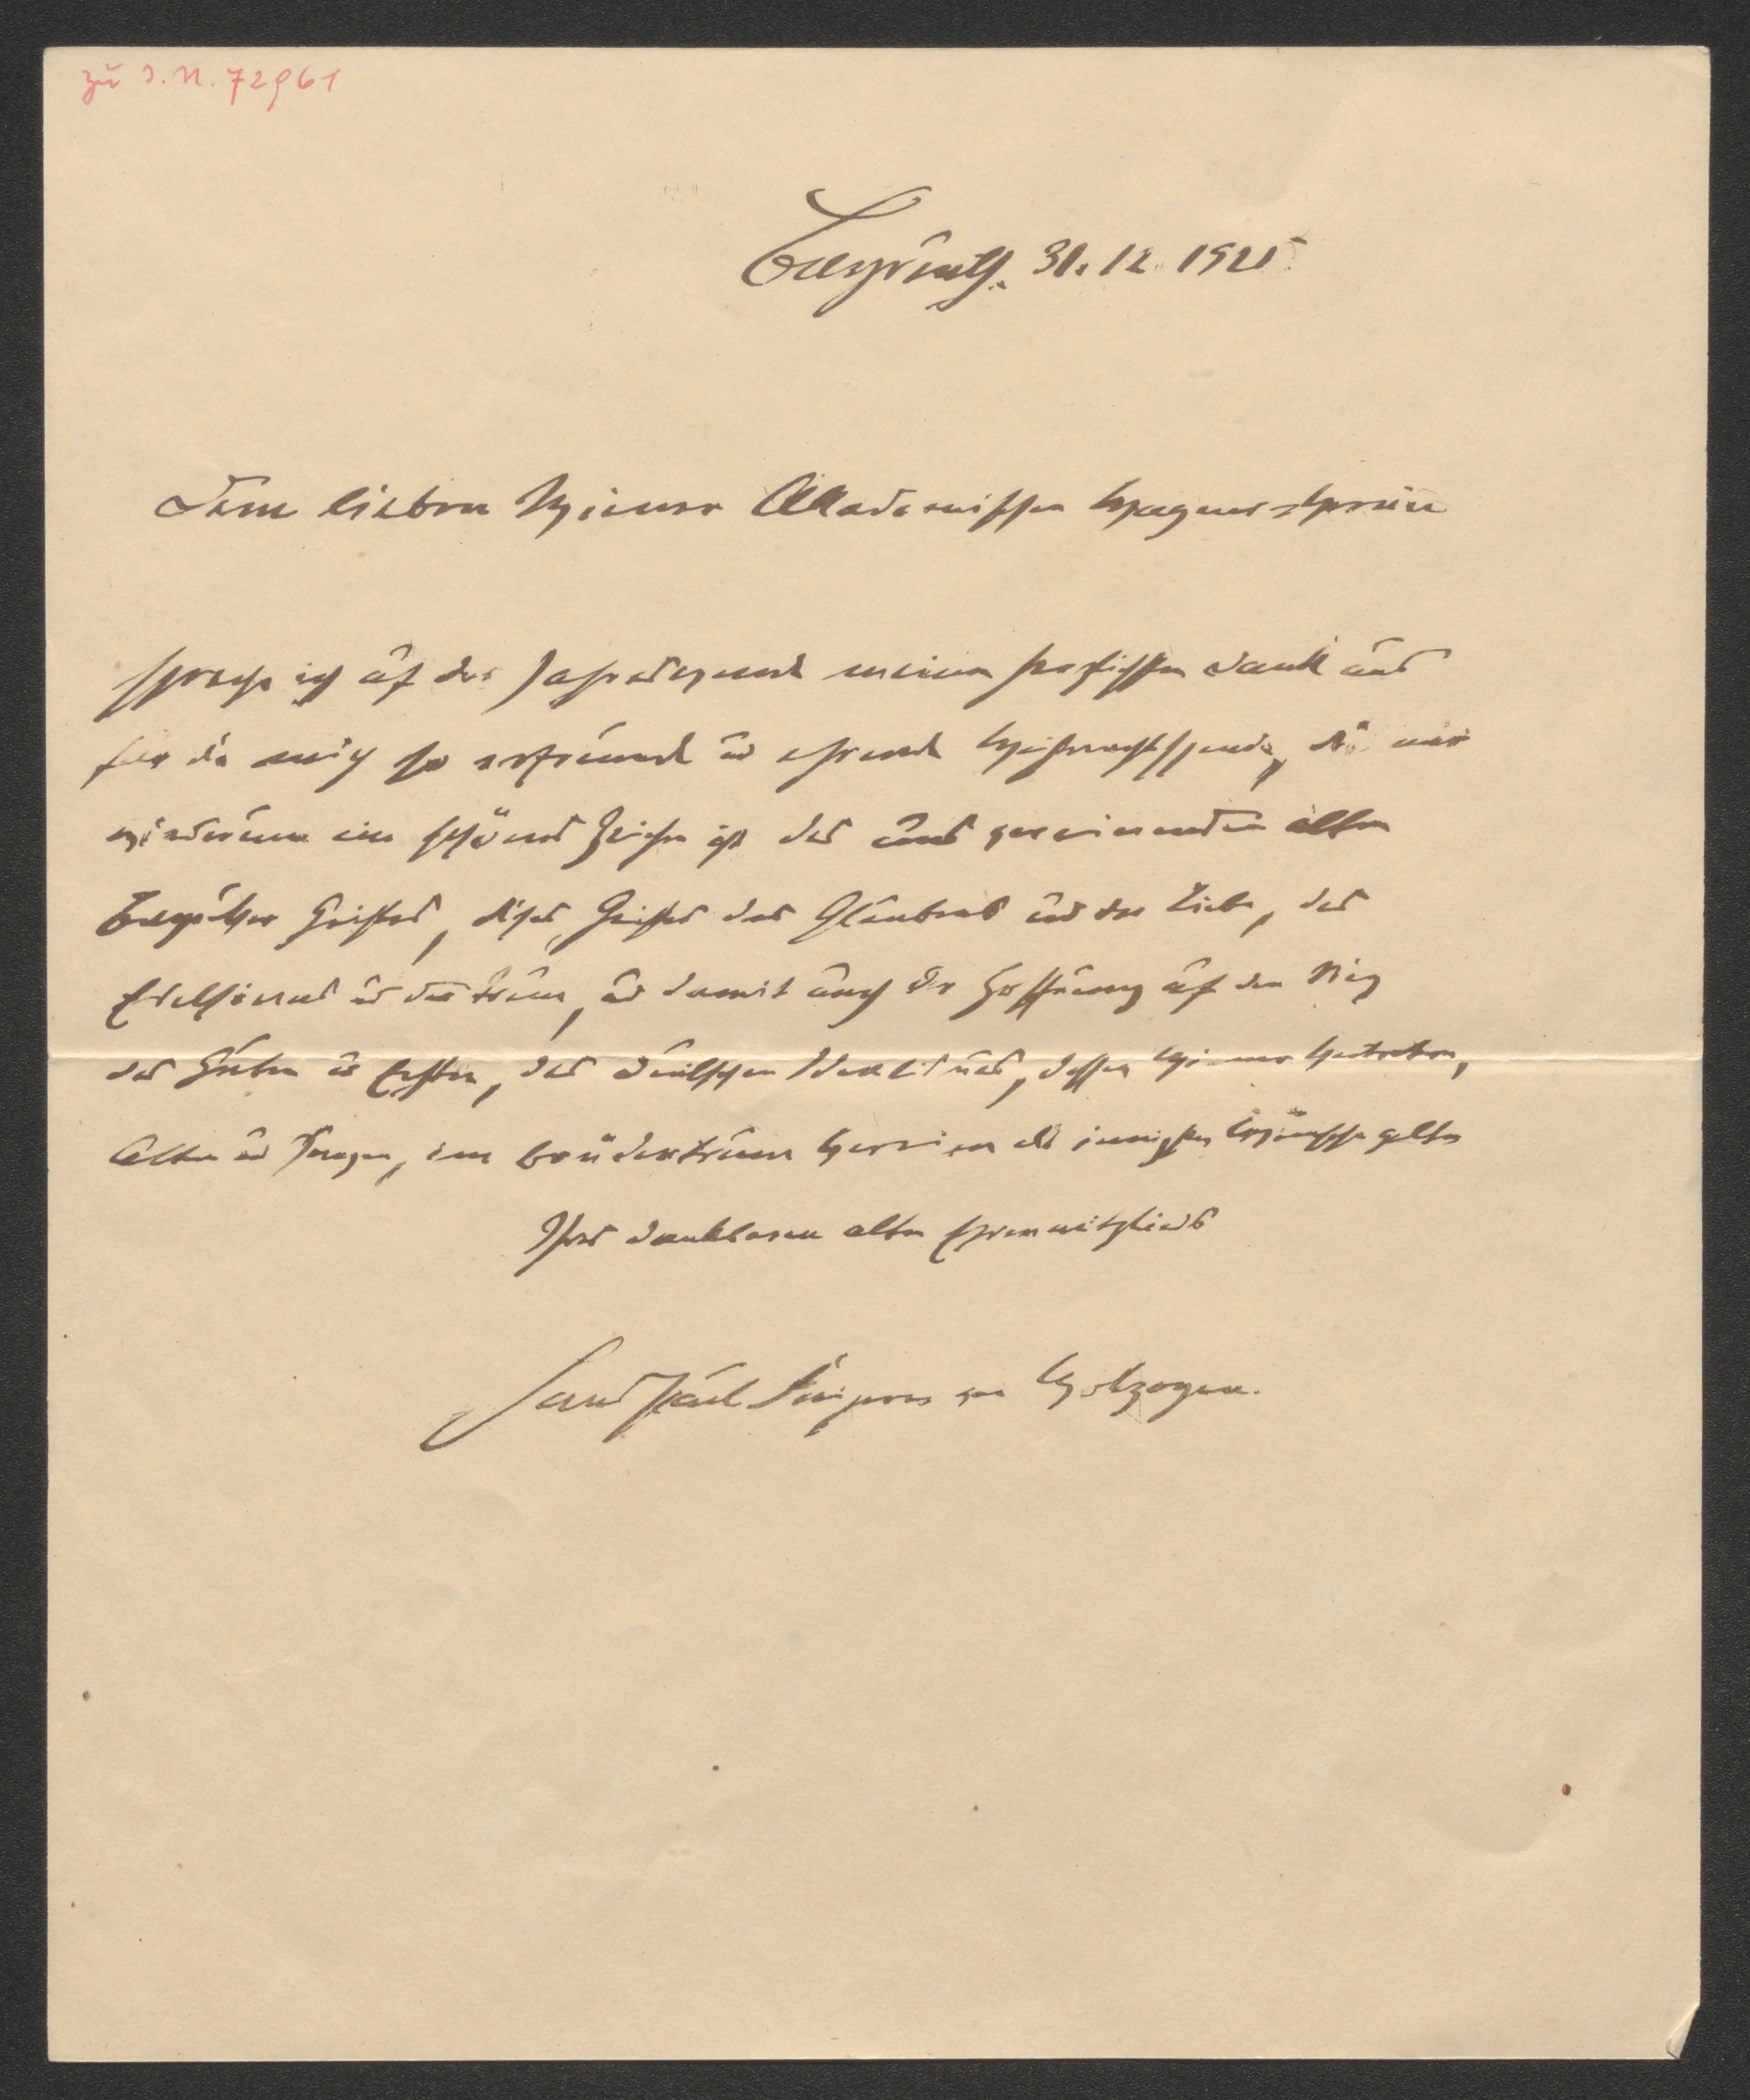 zu I.N. 72961
Bayreuth. 31.12.1925.
Dem lieben Wiener Akademischen Wagner-Verein
spreche ich auf der Jahreswende meinen herzlichsten Dank aus
für die mich so erfreuend u ehrende Weihnachtsspende, die mir
wiederum ein schönes Zeichen ist des uns vereinenden alten
Bayreuther Geistes, dieses Geistes des Glaubens und der Liebe, des
Edelsinnes u der Treue, u damit auch der Hoffnung auf den Sieg
des Guten u Echten, des deutschen Idealismus, dessen Wiener Vertretern,
Alten u Jungen, im brüdertreuen Verein die innigsten Wünsche gelten
Ihres dankbaren alten Ehrenmitglieds
Hans Paul Freiherr von Wolzogen.